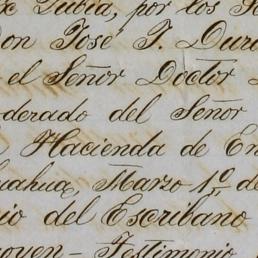 Lubia, por los
Don José F.
el Señor Doctor
derado del Señor
Hacienda de En
uahua, Marzo 1º de
io del Escribano
oyen - Testimonio